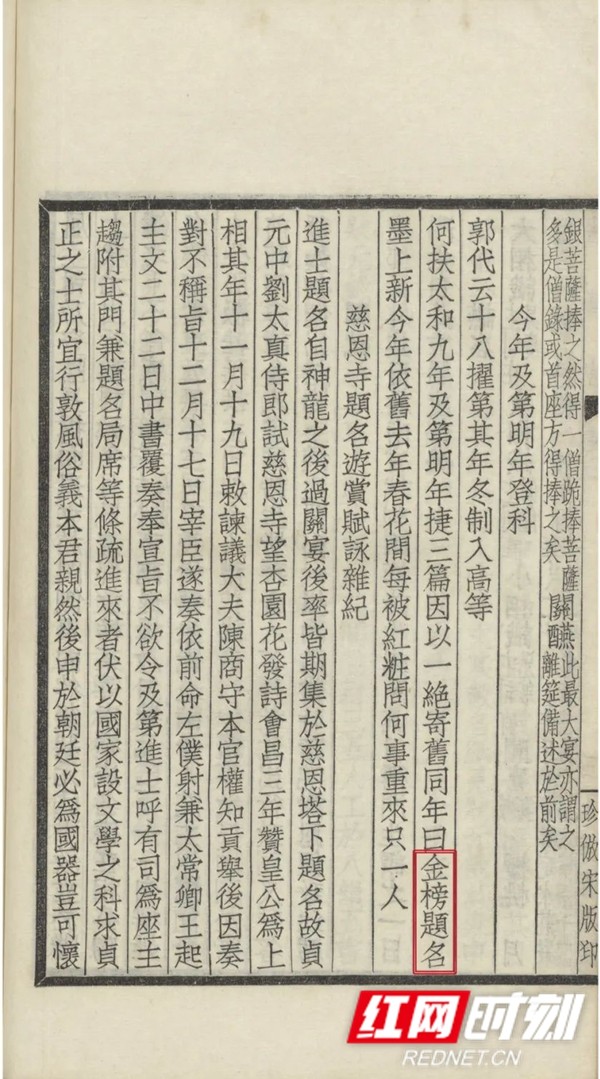 銀菩薩捧之然得一僧跪捧菩薩關燕此最大宴亦謂之
多是僧錄或首座方得捧之矣酺離筵備述於前矣
今年及第明年登科
郭代云十八擢第其年冬制入高等
何扶太和九年及第明年捷三篇因以一絕寄舊同年曰金榜題名
墨上新今年依舊去年春花間每被紅粧問何事重來只一人
慈恩寺題名遊賞賦詠雜紀
進士題名自神龍之後過關宴後率皆期集於慈恩塔下題名故貞
元中劉太真侍郎試慈恩寺望杏園花發詩會昌三年贊皇公為上
相其年十一月十九日敕諫議大夫陳商守本官權知貢舉後因奏
對不稱旨十二月十七日宰臣遂奏依前命左僕射兼太常卿王起
主文二十二日中書覆奏奉宣旨不欲令及第進士呼有司為座主
趨附其門兼題名局席等條疏進來者伏以國家設文學之科求貞
正之士所宜行敦風俗義本君親然後申於朝廷必為國器豈可懷
珍倣宋版印
红网时刻
REDNET.CN